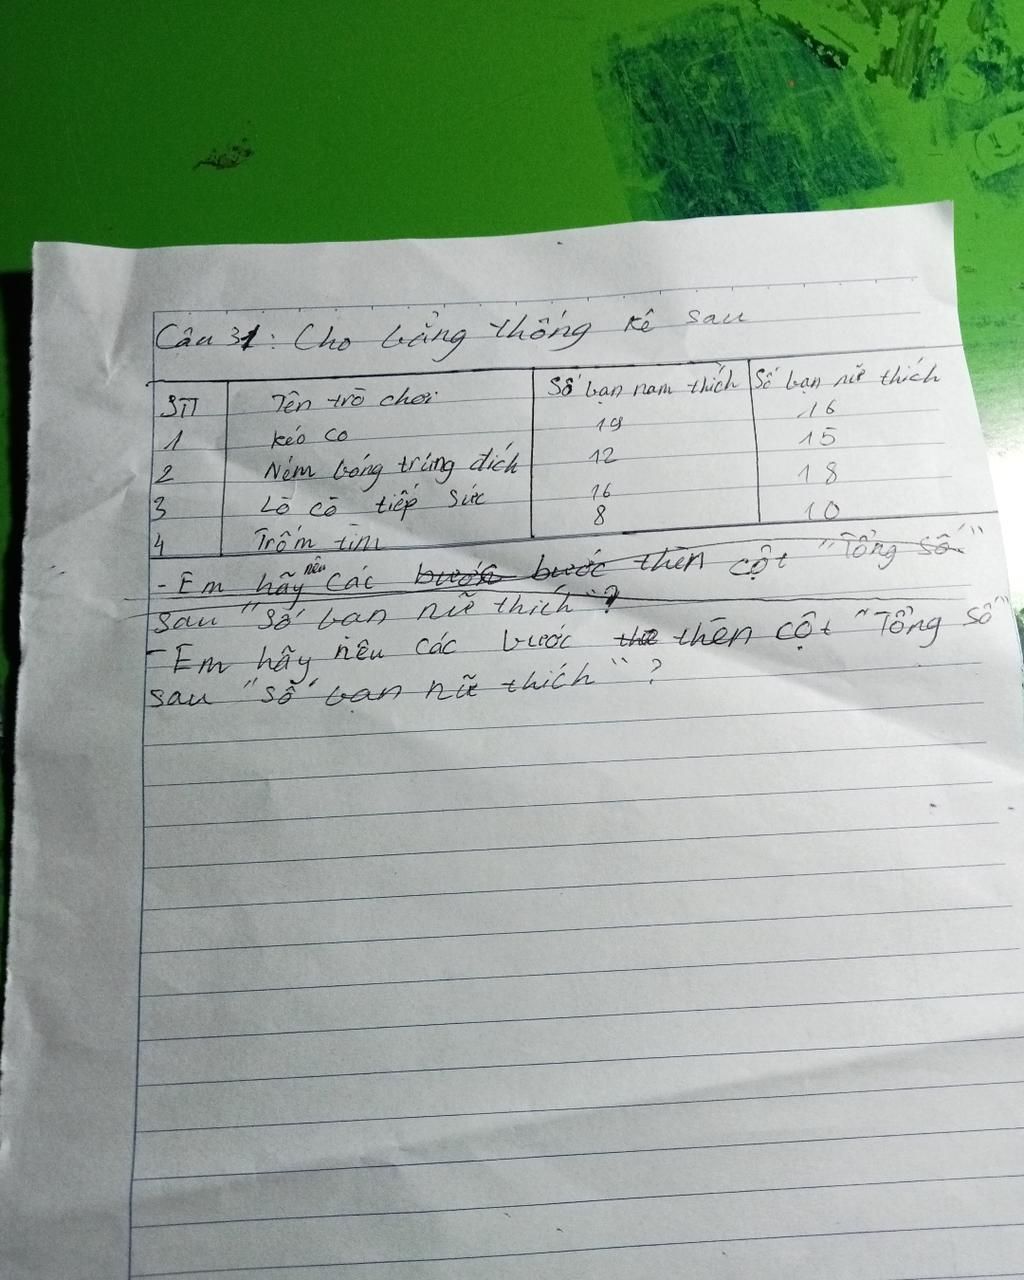 Câu 31: Cho bảng thống kê sau
STT Tên trò chơi Số bạn nam thích Số bạn nữ thích
1 Kéo co 19 16
2 Ném bóng trúng đích 12 15
3 Lò cò tiếp sức 16 18
4 Trốm tìm 8 10
- Em hãy nêu các bước thên cột "Tổng số"
sau "Số bạn nữ thích"?
- Em hãy nêu các bước thên cột "Tổng số"
sau "Số bạn nữ thích"?